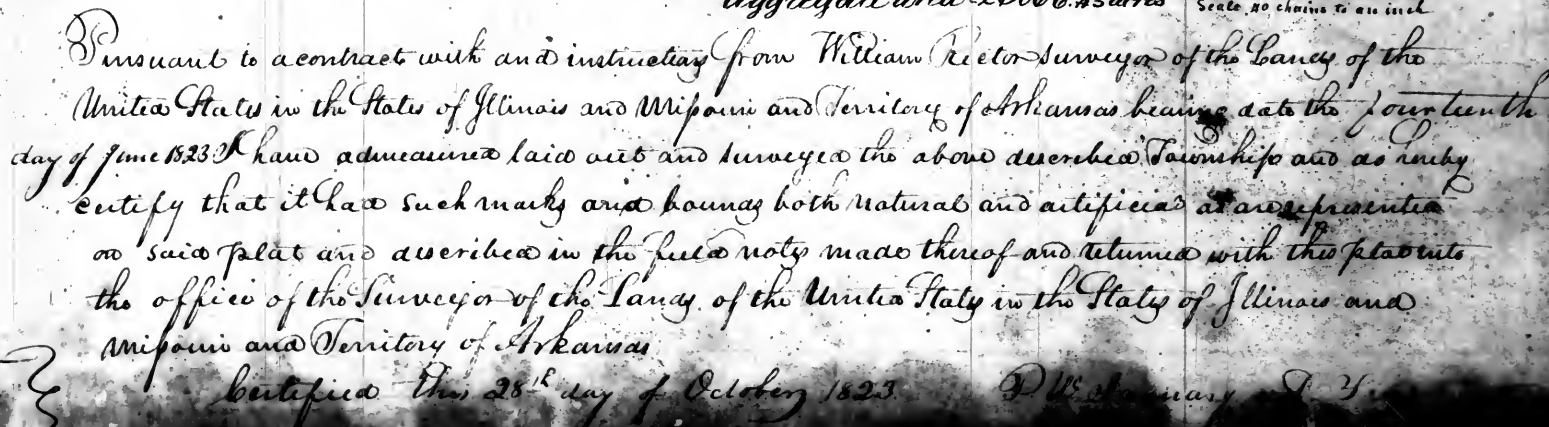 Aggregate area
Scale 40 chains to an inch
Pursuant to a contract with and instructions from William Rector surveyor of the Lands of the
United States in the States of Illinois and Missouri and Territory of Arkansas bearing date the fourteenth
day of June 1823 I have admeasured laid out and surveyed the above described Township and do hereby
certify that it had such marks and bounds both natural and artificial as are represented
on said plat and described in the field notes made thereof and returned with this plat into
the office of the Surveyor of the Lands of the United States in the States of Illinois and
Missouri and Territory of Arkansas
Certified this 28th day of October 1823